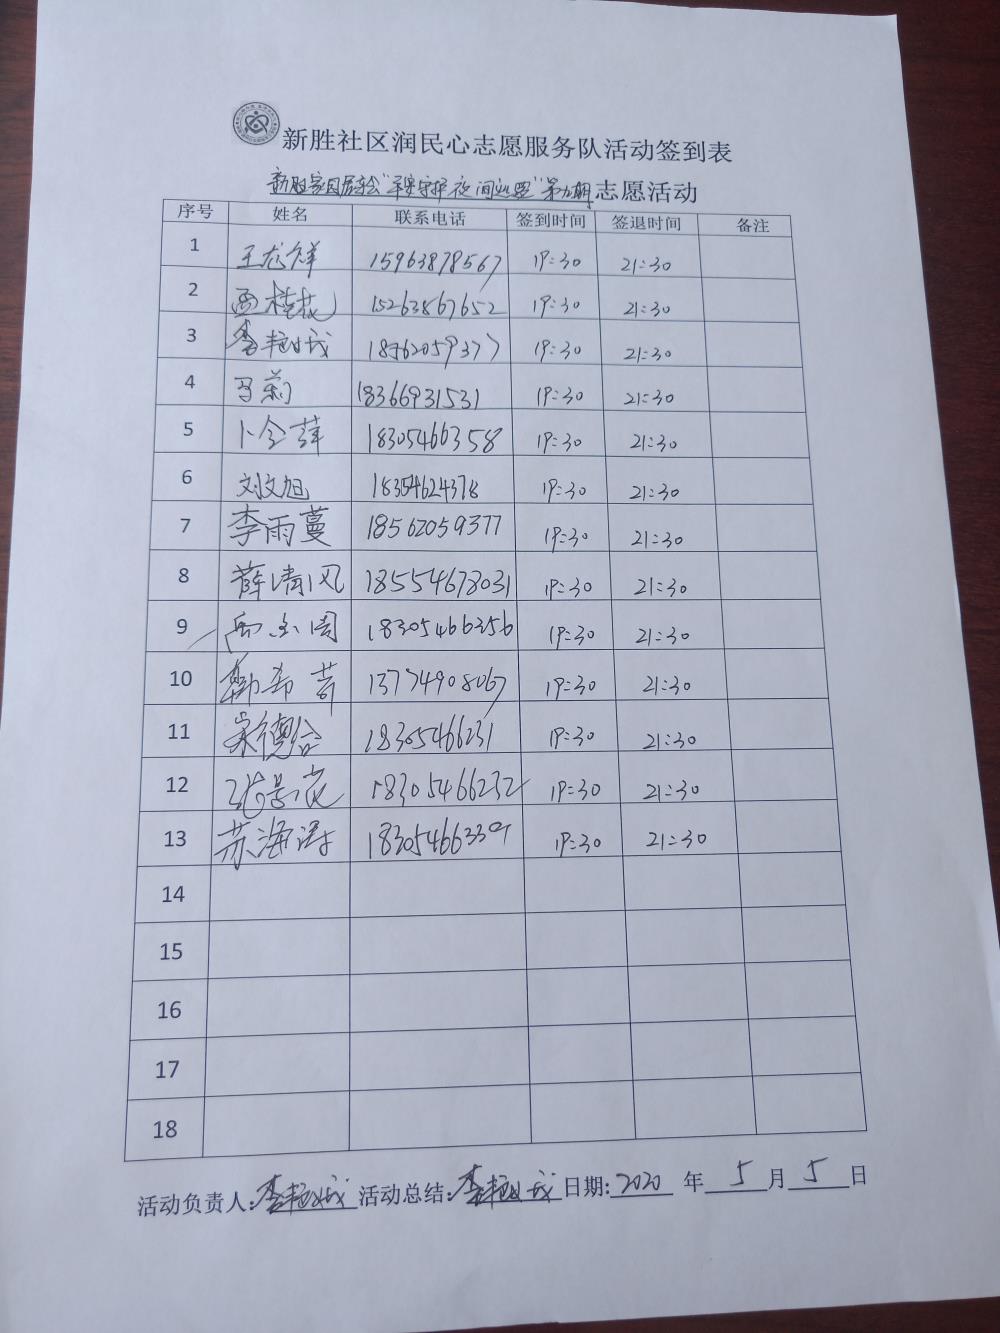 新胜社区润民心志愿服务队活动签到表
新胜家园居委会"平安守护 夜间巡逻"第九期志愿活动
序号 姓名 联系电话 签到时间 签退时间 备注
1 王龙祥 15963878567 19:30 21:30
2 西桂花 15263867652 19:30 21:30
3 李艳城 18562059377 19:30 21:30
4 马莉 18366931531 19:30 21:30
5 卜令萍 18305466358 19:30 21:30
6 刘文旭 18354624378 19:30 21:30
7 李雨蔓 18562059377 19:30 21:30
8 薛清风 18554678031 19:30 21:30
9 18305466356 19:30 21:30
10 13774908067 19:30 21:30
11 宋德合 18305466231 19:30 21:30
12 张景花 18305466232 19:30 21:30
13 苏海涛 18305466339 19:30 21:30
14
15
16
17
18
活动负责人:李艳城 活动总结:李艳城 日期:2020 年 5 月 5 日